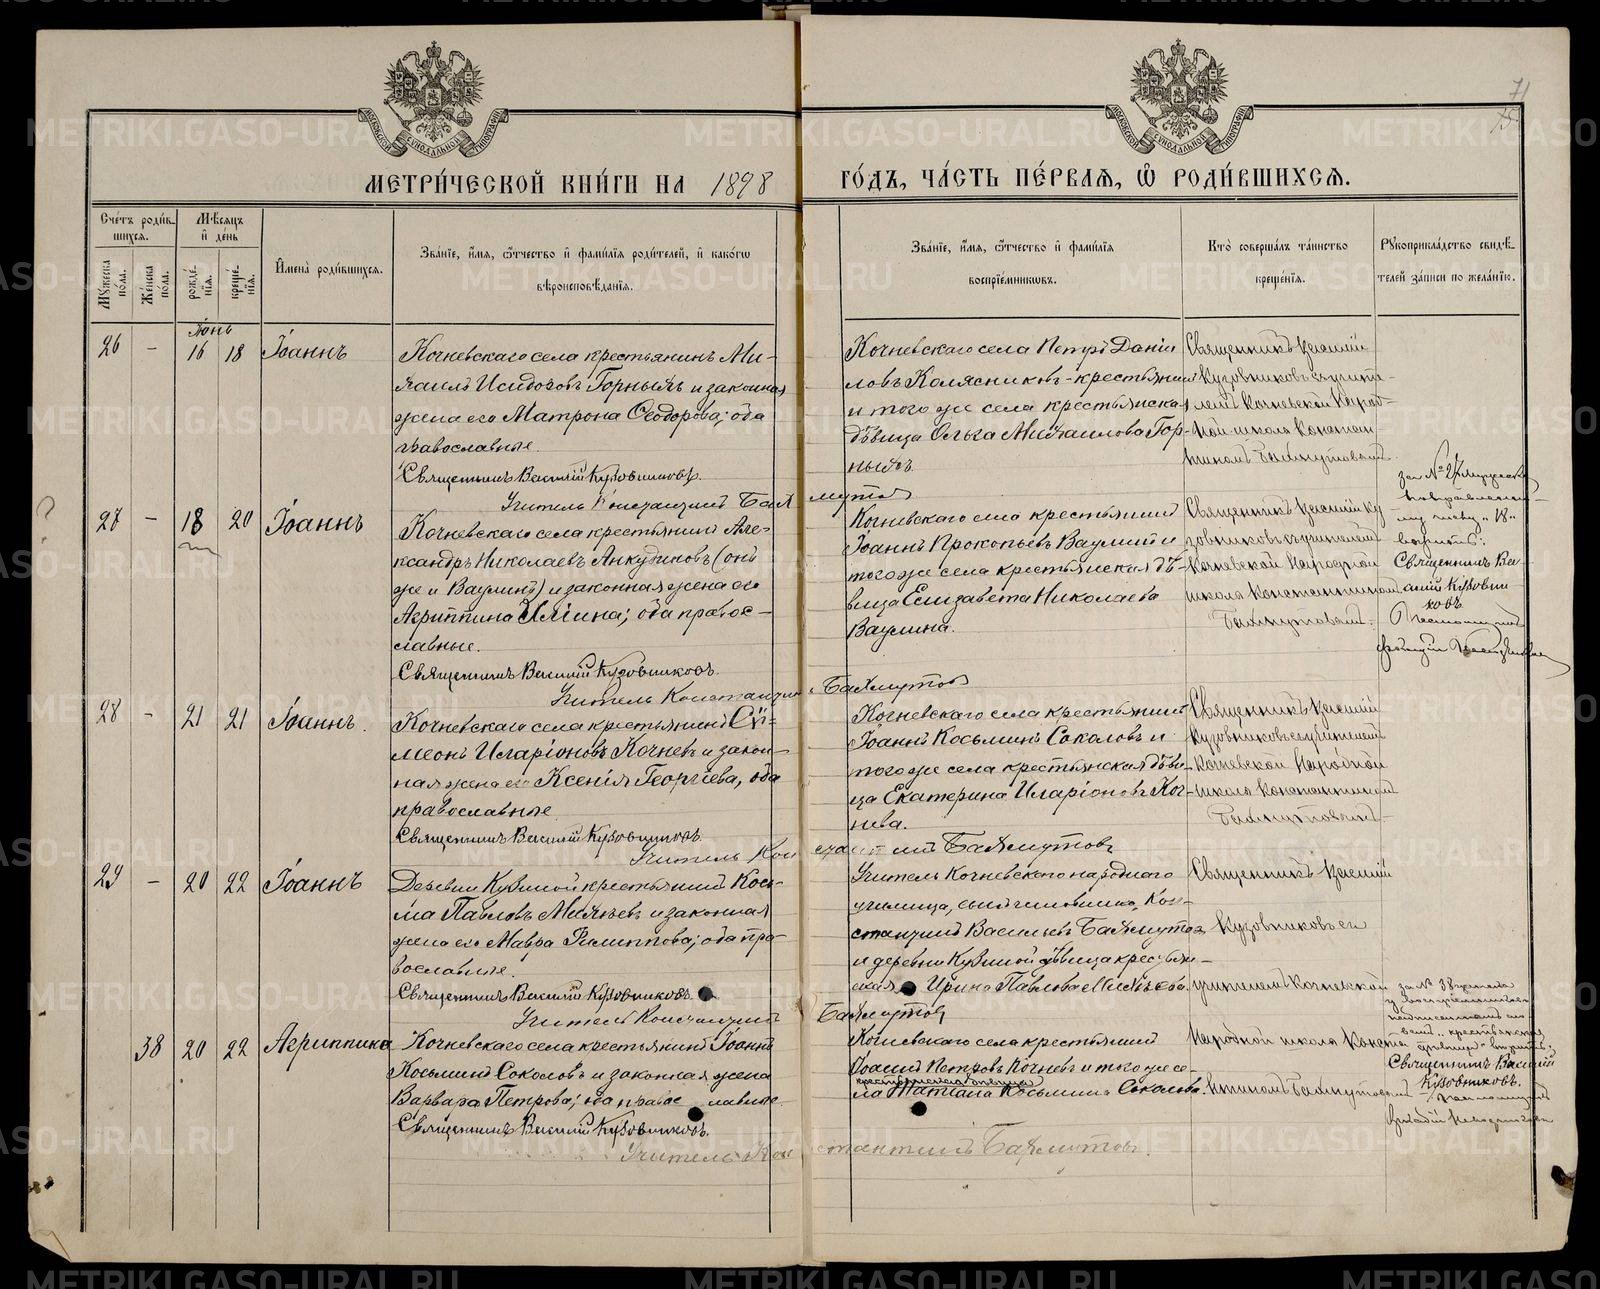 МЕТРИ́ЧЕСКОЙ КНИ́ГИ НА 1898
ГО́ДЪ, ЧА́СТЬ ПЕ́РВАЯ, Ѡ РОДИ́ВШИХСЯ.
71
Сче́тъ роди́вшихся.
Мѣ́сяцъ и҆ де́нь
Мꙋ́жеска по́ла.
Же́нска по́ла.
рожде́нїя.
креще́нїя.
И҆мена̀ роди́вшихся.
Зва́нїе, и҆́мя, ѻ҆́тчество и҆ фамѝлїя роди́телей, и҆ како́гѡ
вѣроисповѣ́данїя.
Зва́нїе, и҆́мя, ѻ҆́тчество и҆ фамѝлїя
воспрїе́мникѡвъ.
Кто̀ соверша́лъ та́инство
креще́нїя.
Рꙋкоприкла́дство свидѣ́телей за́писи по жела́нїю.
Іюнь
26 - 16 18 Іоаннъ
Кочневскаго села крестьянинъ Ми-
хаилъ Исидоровъ Горныхъ и законная
жена его Матрона Ѳеодорова; оба
православные.
Священникъ Василій Кузовниковъ.
Учитель Константинъ Бахмутов
Кочневскаго села Петръ Даніи
ловъ Колясниковъ - крестьянинъ
и того же села крестьянская
дѣвица Ольга Михаилова Гор-
ныхъ.
Священникъ Василій
Кузовниковъ съ учите-
лемъ Кочневской Народ-
ной школы Констан
тиномъ Бахмутовымъ
27 - 18 20 Іоаннъ
Кочневскаго села крестьянинъ Але-
ксандръ Николаевъ Анкудиновъ (онъ
же и Ваулинъ) и законная жена его
Агриппина Иліина; оба правос-
лавные.
Священникъ Василій Кузовниковъ.
Учитель Константин Бахмутов
Кочневскаго села крестьянинъ
Іоаннъ Прокопьевъ Ваулинъ и
того же села крестьянская дѣ-
вица Елизавета Николаева
Ваулина.
Священникъ Василій Ку
зовниковъ съ учителемъ
Кочневской Народной
школы Константиномъ
Бахмутовымъ.
"18"
Священникъ Ва-
силій Кузовни
ковъ.
28 - 21 21 Іоаннъ.
Кочневскаго села крестьянинъ Си-
меонъ Иларіоновъ Кочневъ и закон-
ная жена его Ксенія Георгіева, оба
православные.
Священникъ Василій Кузовниковъ.
Учитель Константин Бахмутовъ
Кочневскаго села крестьянинъ
Іоаннъ Косьминъ Соколовъ и
того же села крестьянская дѣви-
ца Екатерина Иларіоновъ Коч-
нева.
Священникъ Василій
Кузовниковъ съ учителемъ
Кочневской Народной
школы Константиномъ
Бахмутовымъ.
29 - 20 22 Іоаннъ
Деревни Кузиной крестьянинъ Кось-
ма Павловъ Михѣевъ и законная
жена его Мавра Филиппова; оба пра-
вославные.
Священникъ Василій Кузовниковъ.
Учитель Константинъ Бахмутов
Учитель Кочневскаго народнаго
училища, сынъ чиновника, Кон-
стантинъ Васильевъ Бахмутов
и деревни Кузиной дѣвица крестьян-
ская Ирина Павлова Михѣева.
Священникъ Василій
Кузовниковъ съ
учителемъ Кочневской
38 20 22 Агриппина
Кочневскаго села крестьянинъ Іоаннъ
Косьминъ Соколовъ и законная жена
Варвара Петрова; оба православные.
Священникъ Василій Кузовниковъ.
Учитель Константинъ Бахмутовъ.
Кочневскаго села крестьянинъ
Іоаннъ Петровъ Кочневъ и того же се-
крестьянская дѣвица
ла Татіана Косьминъ Соколова.
Народной школы Конста
нтиномъ Бахмутовымъ
Священникъ Василій
Кузовниковъ.